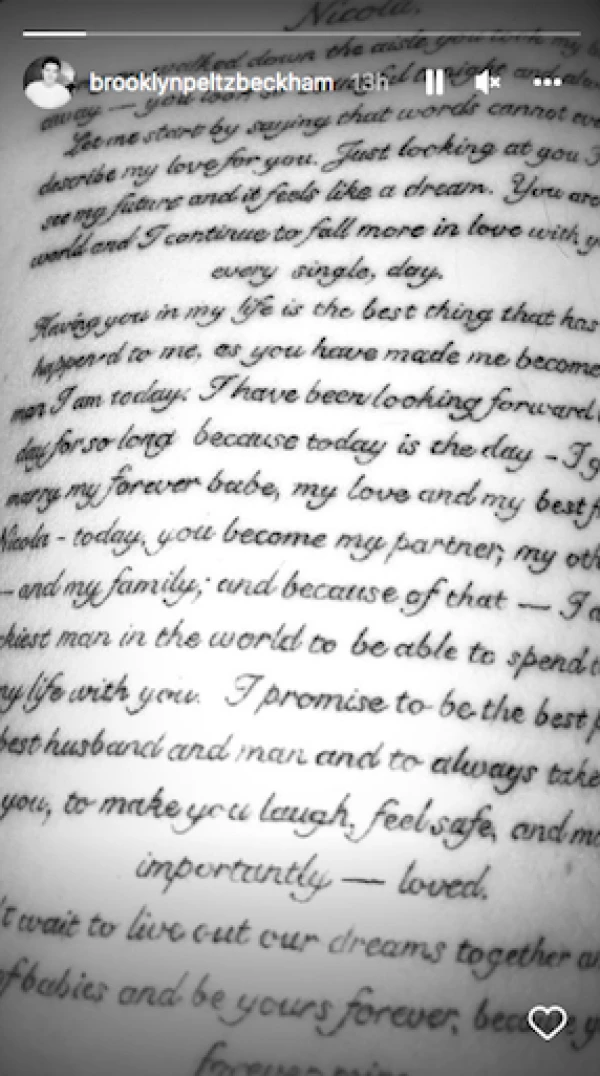 Nicola,
walked down the aisle you took my b
brooklynpeltzbeckham 13h
away — you look tonight and alw
Let me start by saying that words cannot ev
describe my love for you. Just looking at you I
see my future and it feels like a dream. You are
world and I continue to fall more in love with y
every single, day.
Having you in my life is the best thing that has
happened to me, as you have made me become
man I am today: I have been looking forward
day for so long because today is the day - I g
marry my forever babe, my love and my best f
Nicola - today, you become my partner; my oth
- and my family; and because of that — I a
ckiest man in the world to be able to spend t
my life with you. I promise to be the best p
best husband and man and to always take
you, to make you laugh, feel safe, and mo
importantly — loved.
't wait to live out our dreams together an
of babies and be yours forever, because y
forever mine